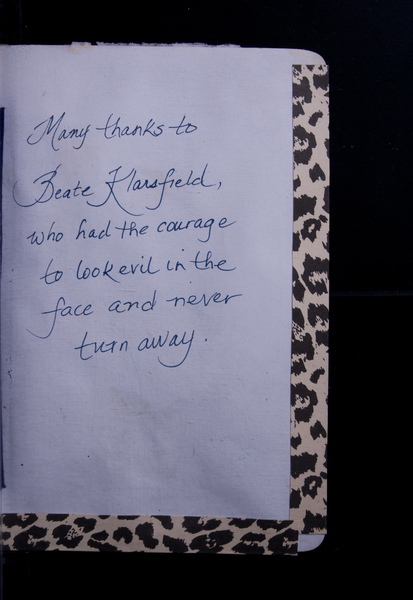 Many thanks to
Beate Klarsfield,
who had the courage
to look evil in the
face and never
turn away.